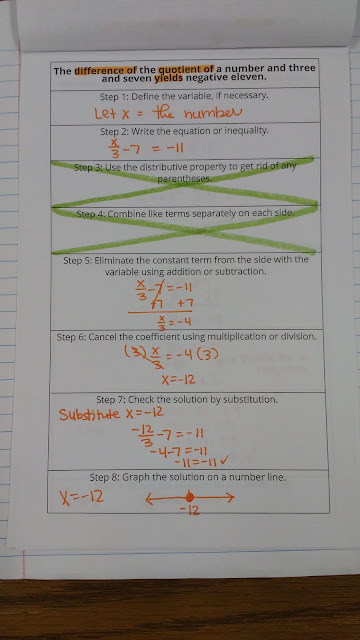 The difference of the quotient of a number and three
and seven yields negative eleven.
Step 1: Define the variable, if necessary.
Let x = the number
Step 2: Write the equation or inequality.
x/3 - 7 = -11
Step 3: Use the distributive property to get rid of any
parentheses.
Step 4: Combine like terms separately on each side.
Step 5: Eliminate the constant term from the side with the
variable using addition or subtraction.
x/3 - 7 = -11
+7 +7
x/3 = -4
Step 6: Cancel the coefficient using multiplication or division.
(3) x/3 = -4 (3)
x=-12
Step 7: Check the solution by substitution.
Substitute x=-12
-12/3 -7 = -11
-4-7=-11
-11=-11 ✓
Step 8: Graph the solution on a number line.
x=-12
-12